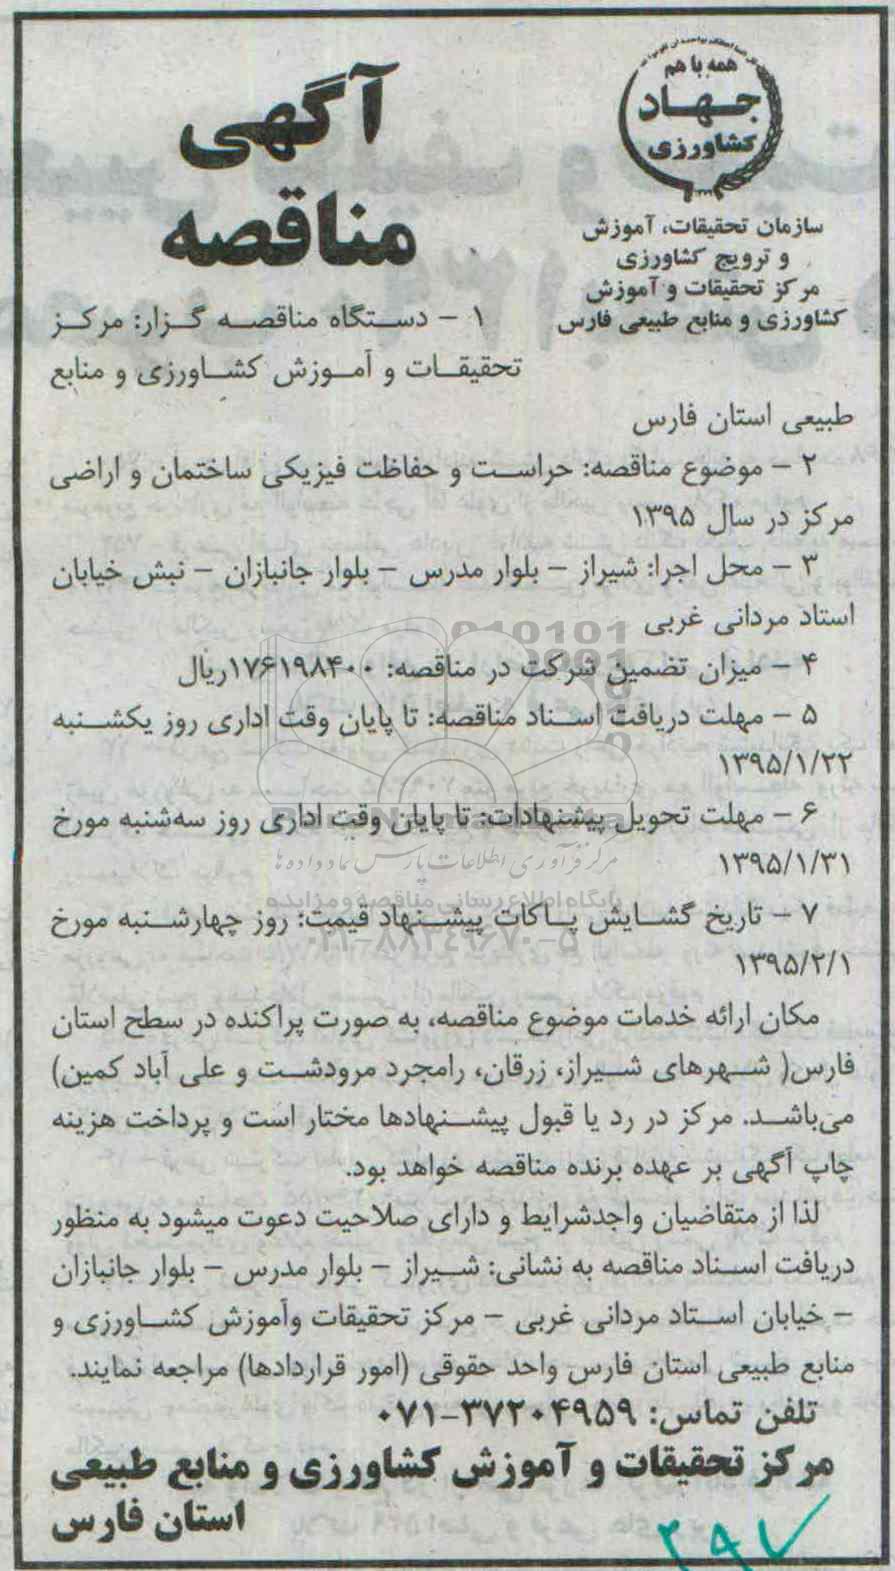 همه با هم
جهاد
کشاورزی
سازمان تحقیقات، آموزش
و ترویج کشاورزی
مرکز تحقیقات و آموزش
کشاورزی و منابع طبیعی فارس
آگهی
مناقصه
۱ – دستگاه مناقصه گزار: مرکز
تحقیقات و آموزش کشاورزی و منابع
طبیعی استان فارس
۲ – موضوع مناقصه: حراست و حفاظت فیزیکی ساختمان و اراضی
مرکز در سال ۱۳۹۵
۳ – محل اجرا: شیراز – بلوار مدرس – بلوار جانبازان – نبش خیابان
استاد مردانی غربی
۴ – میزان تضمین شرکت در مناقصه: ۱۷۶۱۹۸۴۰۰ریال
۵ – مهلت دریافت اسناد مناقصه: تا پایان وقت اداری روز یکشنبه
۱۳۹۵/۱/۲۲
۶ – مهلت تحویل پیشنهادات: تا پایان وقت اداری روز سه‌شنبه مورخ
۱۳۹۵/۱/۳۱
مرکز فرآوری اطلاعات پارس نماد داده ها
پایگاه اطلاع رسانی مناقصه و مزایده
۷ – تاریخ گشایش پاکات پیشنهاد قیمت: روز چهارشنبه مورخ
۰۲۱-۸۸۳۴۹۶۷۰-۵
۱۳۹۵/۲/۱
مکان ارائه خدمات موضوع مناقصه، به صورت پراکنده در سطح استان
فارس( شهرهای شیراز، زرقان، رامجرد مرودشت و علی آباد کمین)
می‌باشد. مرکز در رد یا قبول پیشنهادها مختار است و پرداخت هزینه
چاپ آگهی بر عهده برنده مناقصه خواهد بود.
لذا از متقاضیان واجدشرایط و دارای صلاحیت دعوت میشود به منظور
دریافت اسناد مناقصه به نشانی: شیراز – بلوار مدرس – بلوار جانبازان
– خیابان استاد مردانی غربی – مرکز تحقیقات وآموزش کشاورزی و
منابع طبیعی استان فارس واحد حقوقی (امور قراردادها) مراجعه نمایند.
تلفن تماس: ۳۷۲۰۴۹۵۹-۰۷۱
مرکز تحقیقات و آموزش کشاورزی و منابع طبیعی
استان فارس
۲۹۷